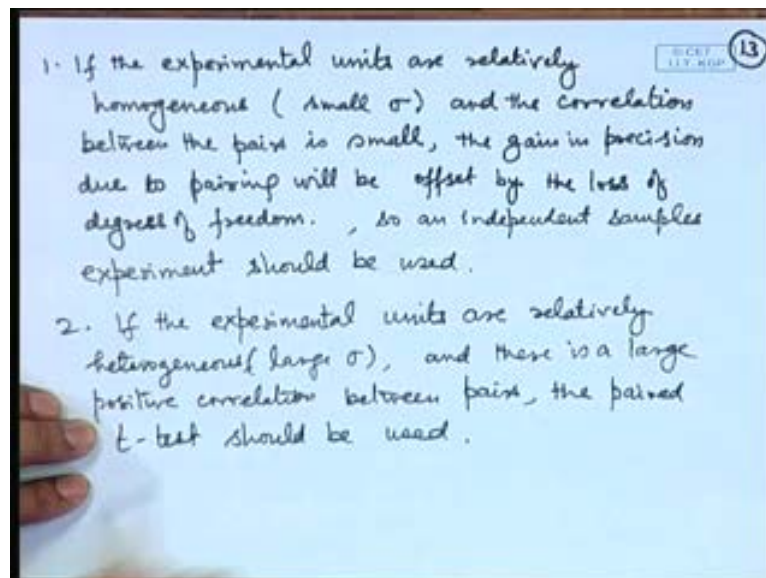 1. If the experimental units are relatively
homogeneous ( small σ) and the correlation
between the pairs is small, the gain in precision
due to pairing will be offset by the loss of
degrees of freedom. , so an independent samples
experiment should be used.
2. If the experimental units are relatively
heterogeneous( large σ), and there is a large
positive correlation between pairs, the paired
t-test should be used.
© CET
I.I.T. KGP
13